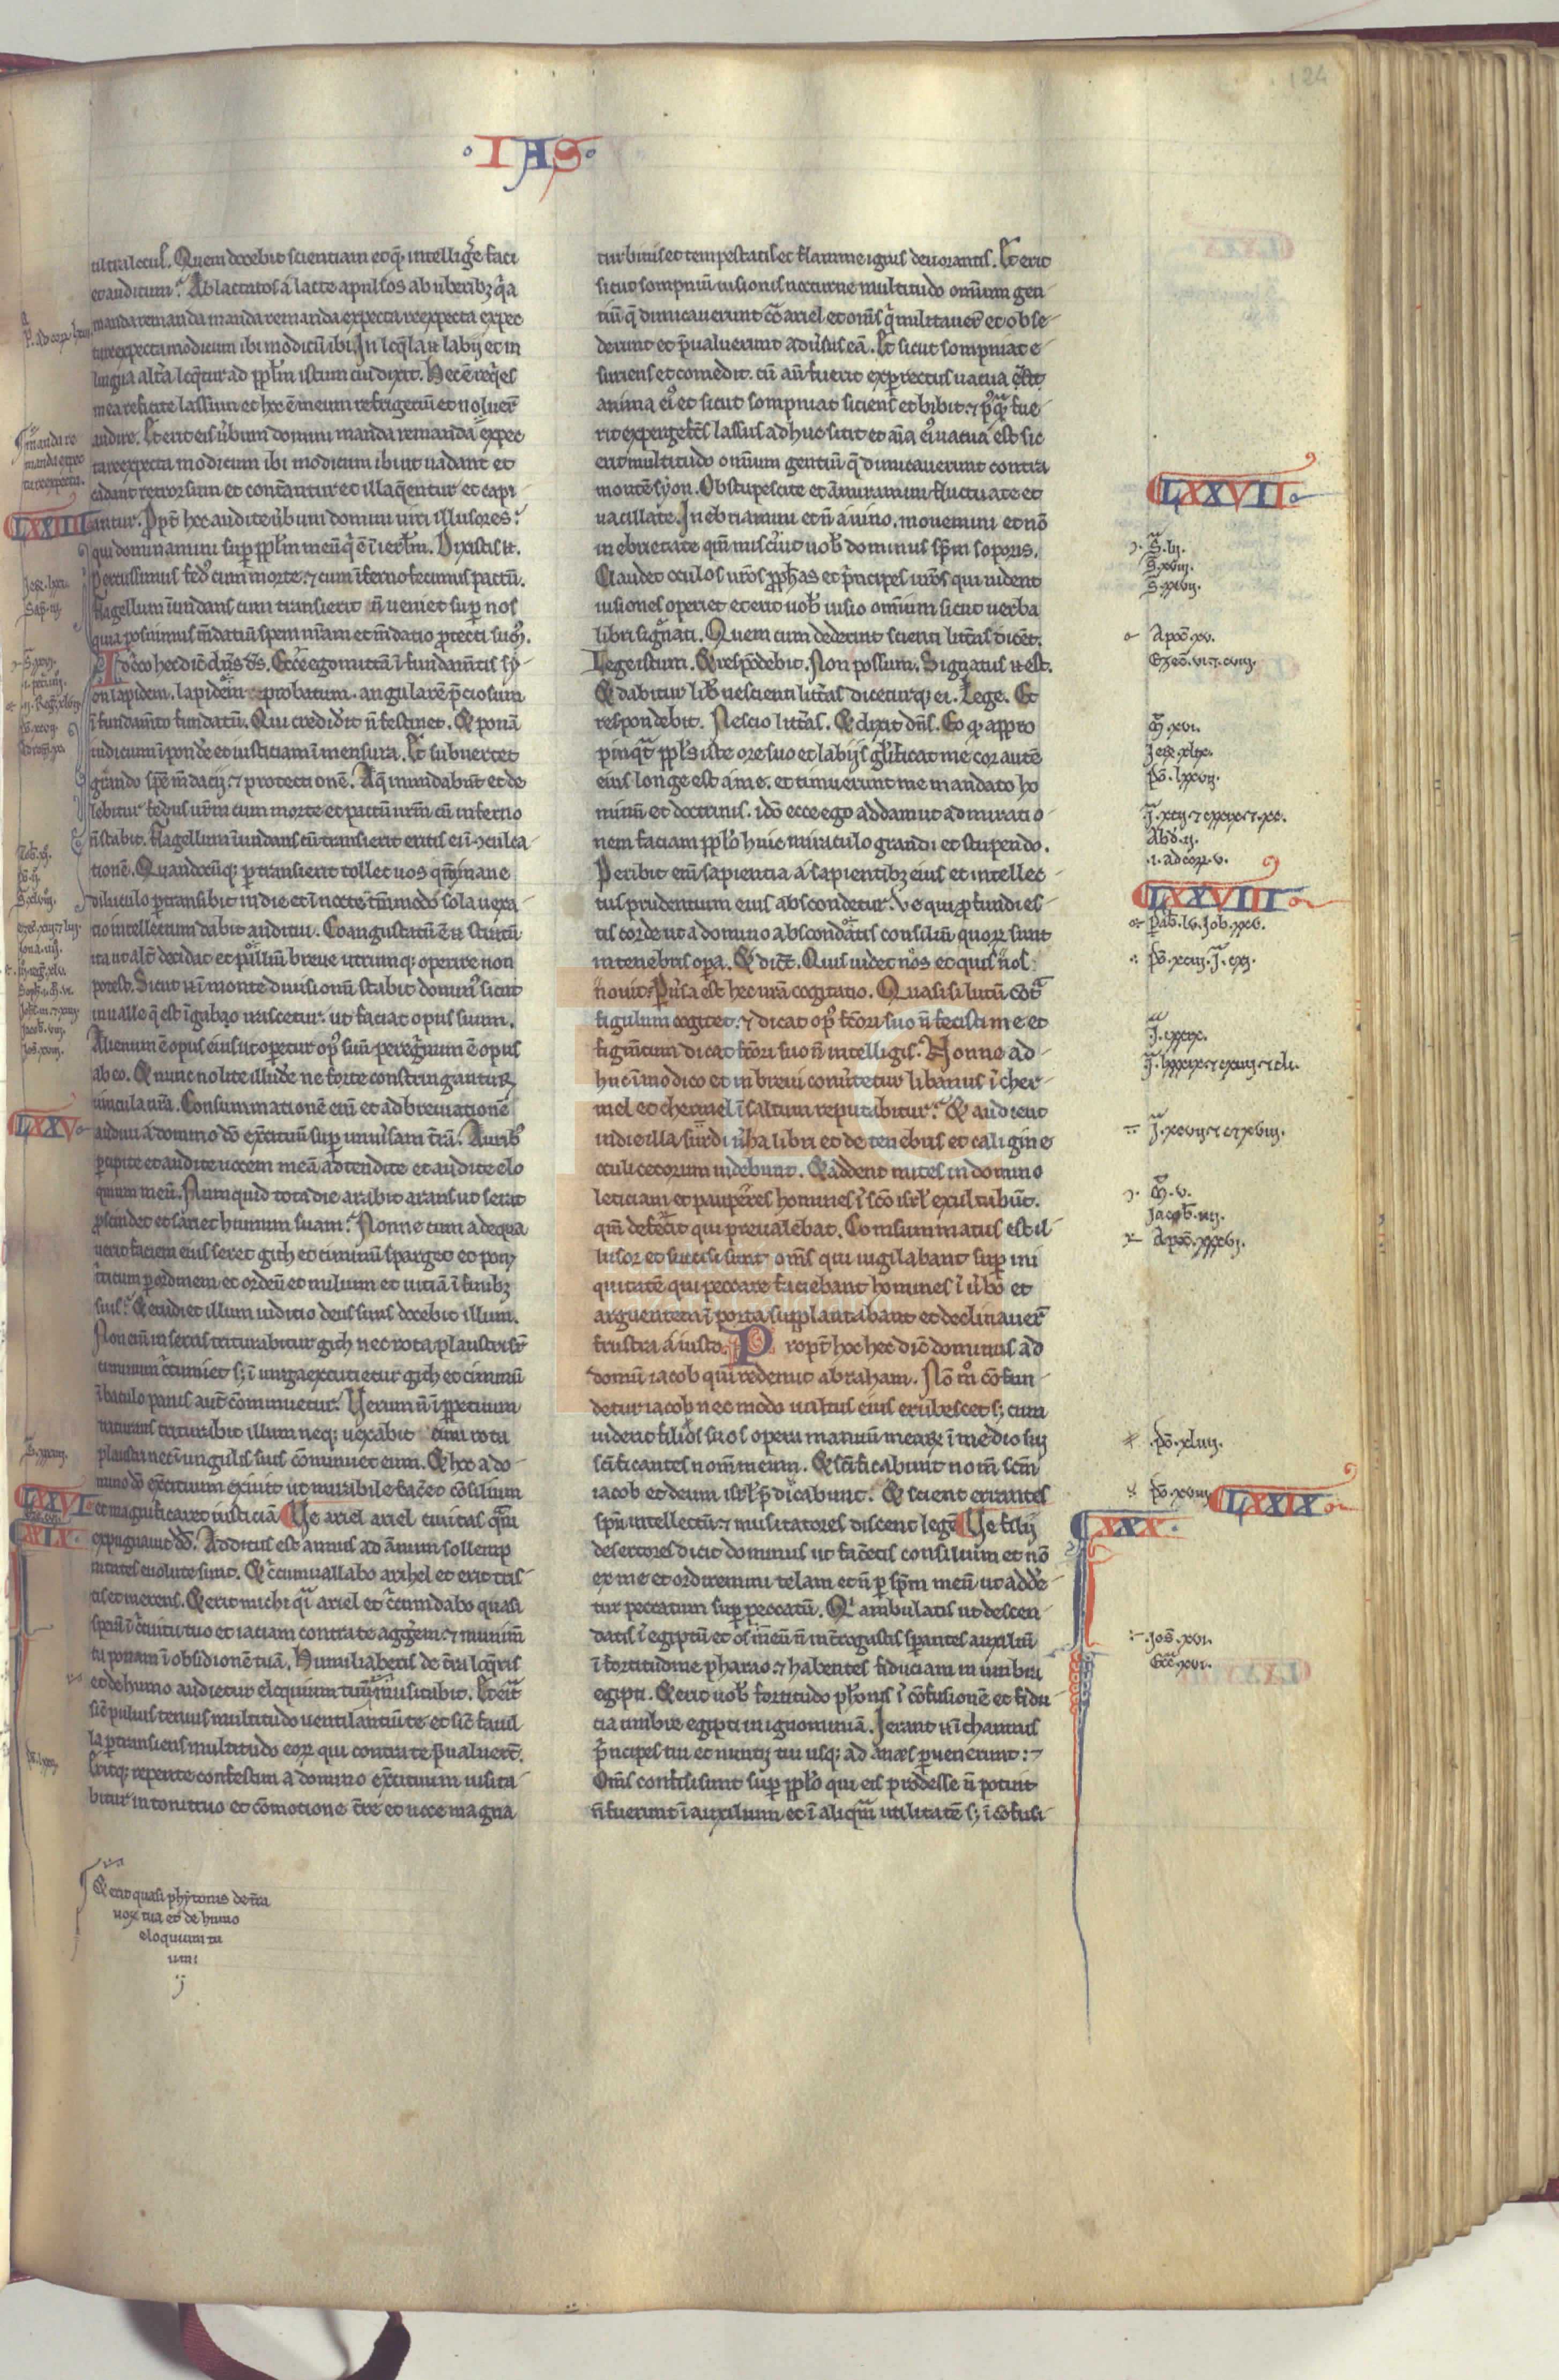 124
·IAS·
ultra locus. Quem docebit scientiam et q̄ intelligẽ faci
et auditum? Ablactatos a lacte apulsos ab uberibꝫ q̄a
manda remanda manda remanda expecta reexpecta expec
ta reexpecta modicum ibi modicũ ibi. In loq̄la n̄ labij et in
lingua alt̃a loq̄tur ad pp̄lm istum cui dixit. Hec ẽ req̄es
mea reficite lassum et hoc ẽ meum refrigeriũ et noluer̃
audire. Et erit eis ũbum domini manda remanda expec
ta reexpecta modicum ibi modicum ibi ut uadant et
cadant retrorsum et cont̃antur et illaq̄entur et capi
LXXIIII
antur. Ppt̃ hoc audite ũbum domini uiri illusores?
qui dominamini sup̱ pp̄lm meũ q̄ ẽ ĩ ierl̃m. Dixistis n̄.
Percussimus fedꝰ cum morte ⁊ cum ĩferno fecimus pactũ.
flagellum ĩundans cum transierit n̄ ueniet sup̱ nos
quia posuimus m̃datiũ spem nr̃am et m̃datio ꝓtecti sumꝰ.
Idc̃o hec dic̃ dñs ds̃. Ecce ego mittã ĩ fundam̃tis sy-
on lapidem. lapidem ꝓbatum. angularẽ p̃ciosum
ĩ fundam̃to fundatũ. Qui credid̃it n̄ festinet. Et ponã
iudicium ĩ pond̃e et iusticiam ĩ mensura. Et subuertet
grando spẽ m̃dacij ⁊ protectionẽ. Aq̄ inundabũt et de
lebitur fedus ur̃m cum morte et pactũ urm̃ cũ inferno
n̄ stabit. flagellum ĩundans cũ transierit eritis ei ĩ ↄculca
tionẽ. Quandocũqꝫ p̱transierit tollet uos qm̃ mane
diluculo p̱transibit in die et ĩ nocte tm̃modo sola uexa
tio intellectum dabit auditui. Coangustatũ ẽ n̄ stratũ
ita ut alt̃ decidat et palliũ breue utrumqꝫ operire non
potest. Sicut n̄ ĩ monte diuisionũ stabit dominꝰ sicut
in ualle q̄ est ĩ gabao irascetur. ut faciat opus suum.
Alienum ẽ opus eius ut operetur opꝰ suũ peregr̃inum ẽ opus
ab eo. Et nunc nolite illud̃e ne forte constringantur
uincula ur̃a. Consummationẽ eni et adbreuiationẽ
LXXV
audiui a domino dõ exc̃ituũ sup̱ uniũsam t̃rã. Auribꝰ
p̱cipite et audite uocem meã adtendite et audite elo
quium meũ. Numquid tota die arabit arans ut serat
ꝓscindet et sariet humum suam? Nonne cum adequa
uerit faciem eius seret gith et ciminũ sparget et ponꝫ
t̃ticum p̱ ordinem et ordeũ et milium et uiciã ĩ finibꝫ
suis? Et erudiet illum iuditio deus suus docebit illum.
Non eni in serris triturabitur gith nec rota plaustri sr̃
ciminum c̃cumiet sꝫ ĩ uirga excutietur gith et ciminũ
ĩ baculo panis aut̃ comminuetur. Uerum n̄ ĩ p̱petuum
triturans triturabit illum neqꝫ uexabit eum rota
plaustri nec ĩ ungulis suis cõminuet eum. Et hoc a do-
mino dõ exc̃ituum exiuit ut mirabile fac̃et cõsilium
LXXVI
et magnificaret iusticiã. Ue ariel ariel ciuitas quã
XXIX.
expugnauit dd̃. Additus est annus ad ãnum sollemp
nitates euolute sunt. Et c̃cumuallabo arihel et erit tris
tis et merens. Et erit michi q̃i ariel et c̃cumdabo quasi
sperã ĩ c̃cuitu tuo et iaciam contra te agg̃em ⁊ munim̃
ta ponam ĩ obsidionẽ tuã. Humiliaberis de t̃ra loq̄ris
et de humo audietur eloquium tuũ ⁊ mussitabit. Et erit
sic̃ puluis tenuis multitudo uentilantiũ te et sic̃ fauil
la p̱transiens multitudo eoꝝ qui contra te p̃ualuer̃t.
Eritqꝫ repente confestim a domino exc̃ituum uisita-
bitur in tonitruo et cõmotione t̃re et uoce magna
turbinis et tempestatis et flamme ignis deuorantis. Et erit
sicut sompniũ uisionis nocturne multitudo om̃ium gen
tiũ q̄ dimicauerunt cõ ariel et om̃s q̃ militauer̃ et obse-
derunt et p̃ualuerunt adũsus eã. Et sicut sompniat e-
suriens et comedit. cũ aut̃ fuerit exp̱rectus uacua est
anima eiꝰ et sicut sompniat siciens et bibit ⁊ p̱q̃ fue-
rit expergefc̃s lassus adhuc sitit et aĩa eiꝰ uacua est sic
erit multitudo omnium gentiũ q̄ dimicauerunt contra
montẽ syon. Obstupescite et ãmiramini fluctuate et
uacillate. Inebriamini et n̄ a uino. mouemini et nõ
in ebrietate qm̃ miscũit uob̃ dominus sp̃m soporis.
Claudet oculos ur̃os pp̃has et p̃ncipes uros qui uident
uisiones operiet et erit uob̃ uisio omnium sicut uerba
libri signati. Quem cum dederint scienti litt̃as dicẽt.
Lege istum. Et respõdebit. Non possum. Signatus n̄ est.
Et dabitur lib̃ nescienti litt̃as diceturqꝫ ei. Lege. Et
respondebit. Nescio litt̃as. Et dixit dñs. Eo ꝙ appro
pinqt̃ pp̄ls iste ore suo et labijs gl̃ificat me cor autẽ
eius longe est a me. et timuerunt me mandato ho
minũ et doctrinis. idõ ecce ego addam ut admiratio-
nem faciam pp̄lo huic miraculo grandi et stupendo.
Peribit eni sapientia a sapientibꝫ eius et intellec-
tus prudentium eius abscondetur. Ve qui ꝓfundi es-
tis corde ut a domino abscondatis consiliũ quoꝝ sunt
in tenebris oꝑa. Et dic̃t. Quis uidet nos et quis nos
nouit? P̱uersa est hec ur̃a cogitatio. Quasi si lutũ cõt̃
figulum cogitet. ⁊ dicat opꝰ fc̃ori suo n̄ fecisti me et
figm̃tum dicat fc̃ori suo n̄ intelligis. Nonne ad-
huc ĩ modico et in breui conũtetur libanus ĩ cher-
mel et chermel ĩ saltum reputabitur? Et audient
in die illa surdi ũba libri et de tenebris et caligine
oculi cecorum uidebunt. Et addent mites in domino
leticiam et pauperes homines ĩ scõ isrl̃ exultabũt.
qm̃ defecit qui preualebat. Consummatus est il-
lusor et succisi sunt om̃s qui uigilabant sup̱ ini
quitatẽ qui peccare faciebant homines ĩ ũbo et
arguentem ĩ porta supplantabant et declinauer̃
frustra a iusto. Propt̃ hoc hec dic̃ dominus ad
domũ iacob qui redemit abraham. Nõ mõ cõfun-
detur iacob nec modo uultus eius erubescet sꝫ cum
uiderit filios suos opera manuũ mearꝝ ĩ medio sui
sc̃ificantes nom̃ meum. Et sc̃ificabunt nom̃ scm̃
iacob et deum isrl̃ p̃dicabunt. Et scient errantes
sp̃u intellectũ ⁊ musitatores discent legẽ Ue filij
desertores dicit dominus ut fac̃etis consilium et nõ
ex me et ordiremini telam et n̄ p̱ sp̃m meũ ut add̃e-
tur peccatum sup̱ peccatũ. Qi ambulatis ut descen-
datis ĩ egiptũ et os meũ n̄ int̃rogastis sp̱antes auxiliũ
ĩ fortitudine pharao ⁊ habentes fiduciam in umbra
egipti. Et erit uob̃ fortitudo ph̃onis ĩ cõfusionẽ et fidu
cia umbre egipti in ignominiã. Ierant n̄ ĩ thamnis
p̃ncipes tui et nuntij tui usqꝫ ad anaes p̱uenerunt: ⁊
Om̃s confusi sunt sup̱ pp̄lo qui eis prodesse n̄ potuit
n̄ fuerunt ĩ auxilium et ĩ aliqm̃ utilitatẽ sꝫ ĩ cõfusi-
LXXVII
Apoc̃. xv.
Jere. xlix.
Abd. ij.
LXXVIII
Jacob. iiij.
LXXIX
XXX.
Et erit quasi phytonis de t̃ra
uox tua et de humo
eloquium tu
um